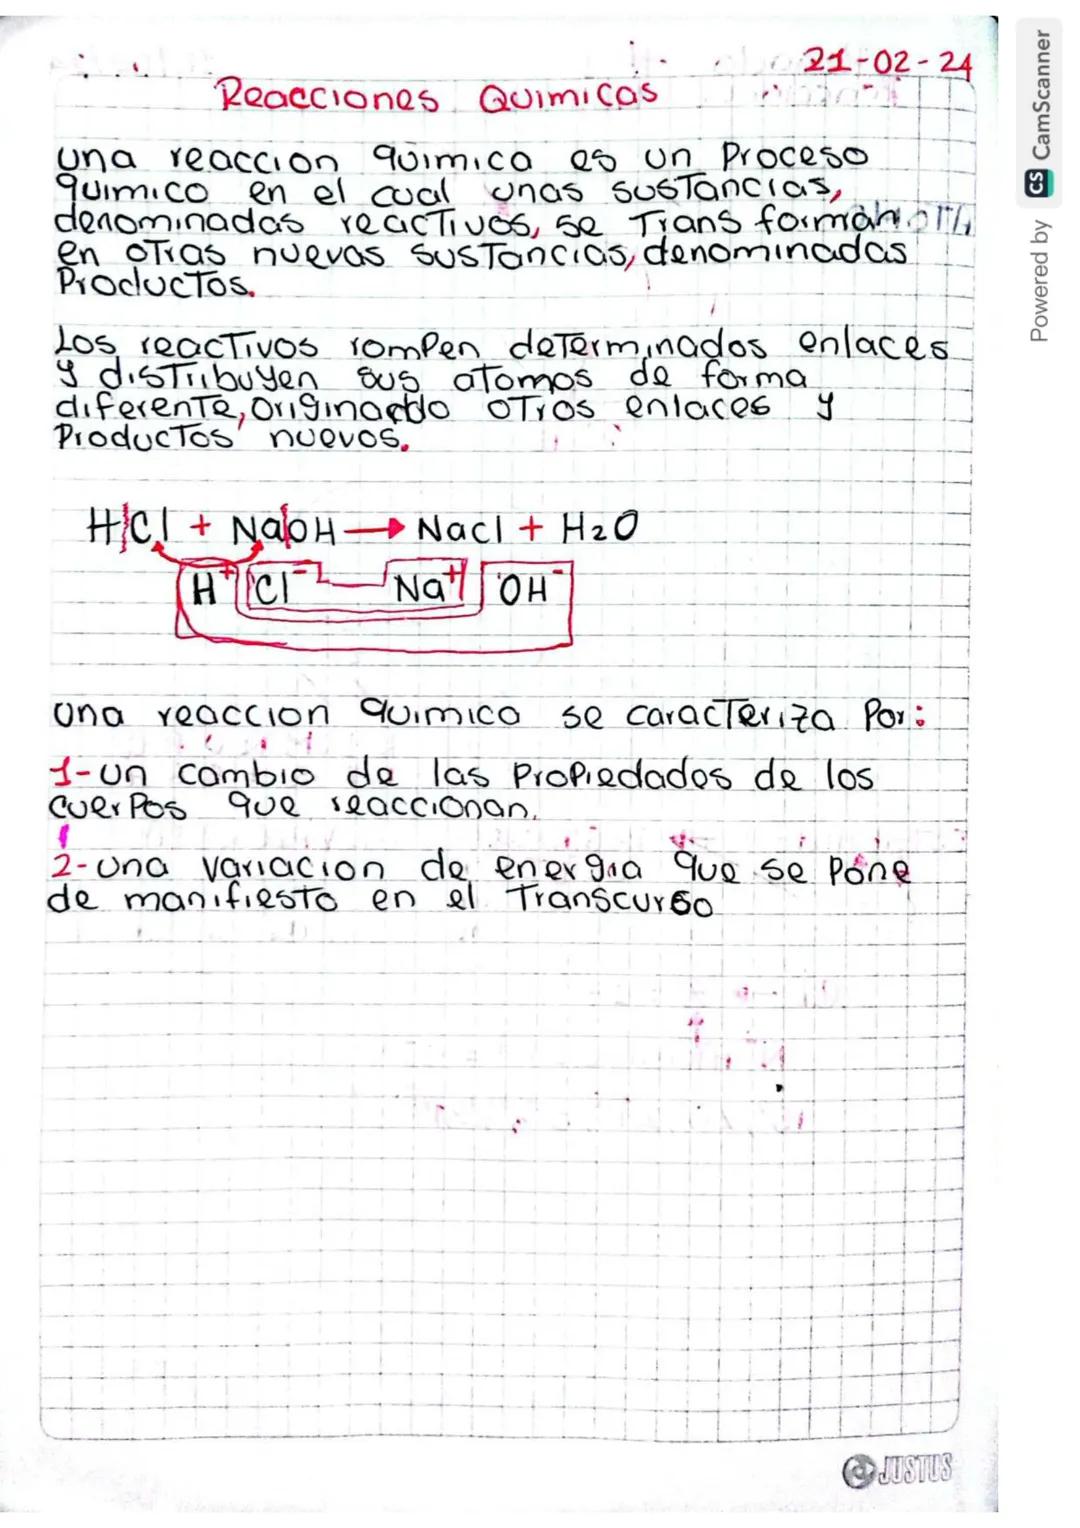 21-02-24
Reacciones Quimicas
una reaccion quimica es un Proceso
quimico en el cual unas sustancias,
denominadas reactivos, se Trans forman
en otras nuevas sustancias, denominadas
Productos.
Los reactivos rompen determinados enlaces
y distribuyen sus atomos de forma
diferente, originando otros enlaces y
Productos nuevos.
HCl + NaOH → Nacl + H2O
H+ Cl- Na+ OH-
una reaccion quimica se caracteriza Por:
1-un cambio de las Propiedados de los
cuerpos que reaccionan.
2-una variacion de energia que se pone
de manifiesto en el Transcurso
JUSTUS
Powered by CS CamScanner